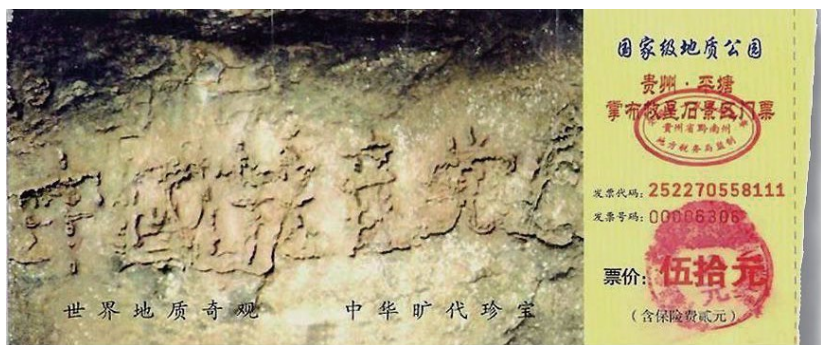 中國共产党亡
世界地质奇观 中华旷代珍宝
国家级地质公园
贵州·平塘
掌布救星石景区门票
贵州省黔南州
地方税务局监制
发票代码：252270558111
发票号码：00006306
票价：伍拾元
（含保险费貳元）